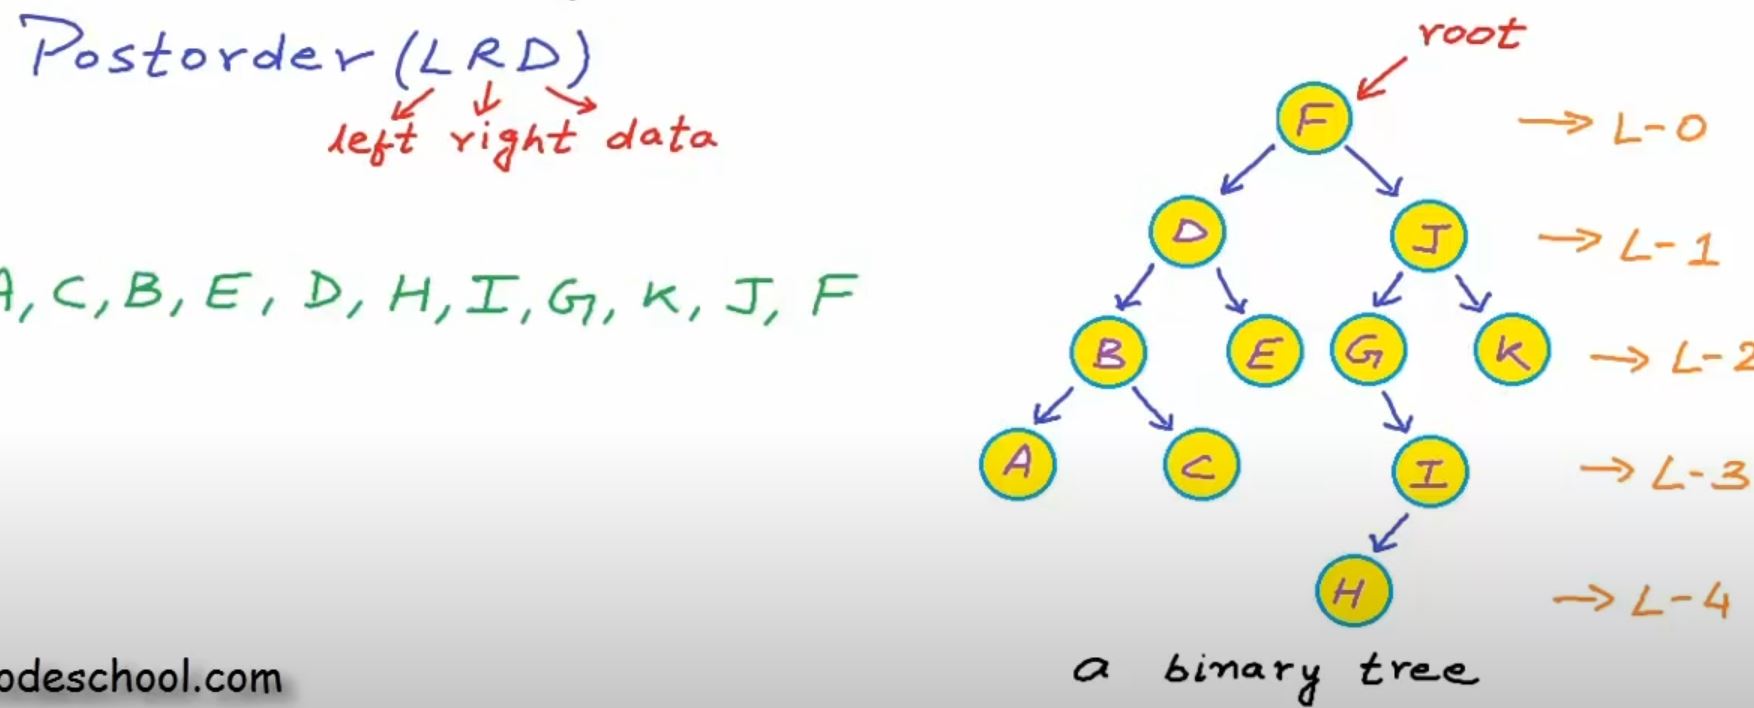 Postorder (LRD)
left right data
A, C, B, E, D, H, I, G, K, J, F
root
F
L-0
D
J
L-1
B
E
G
K
L-2
A
C
I
L-3
H
L-4
a binary tree
odeschool.com